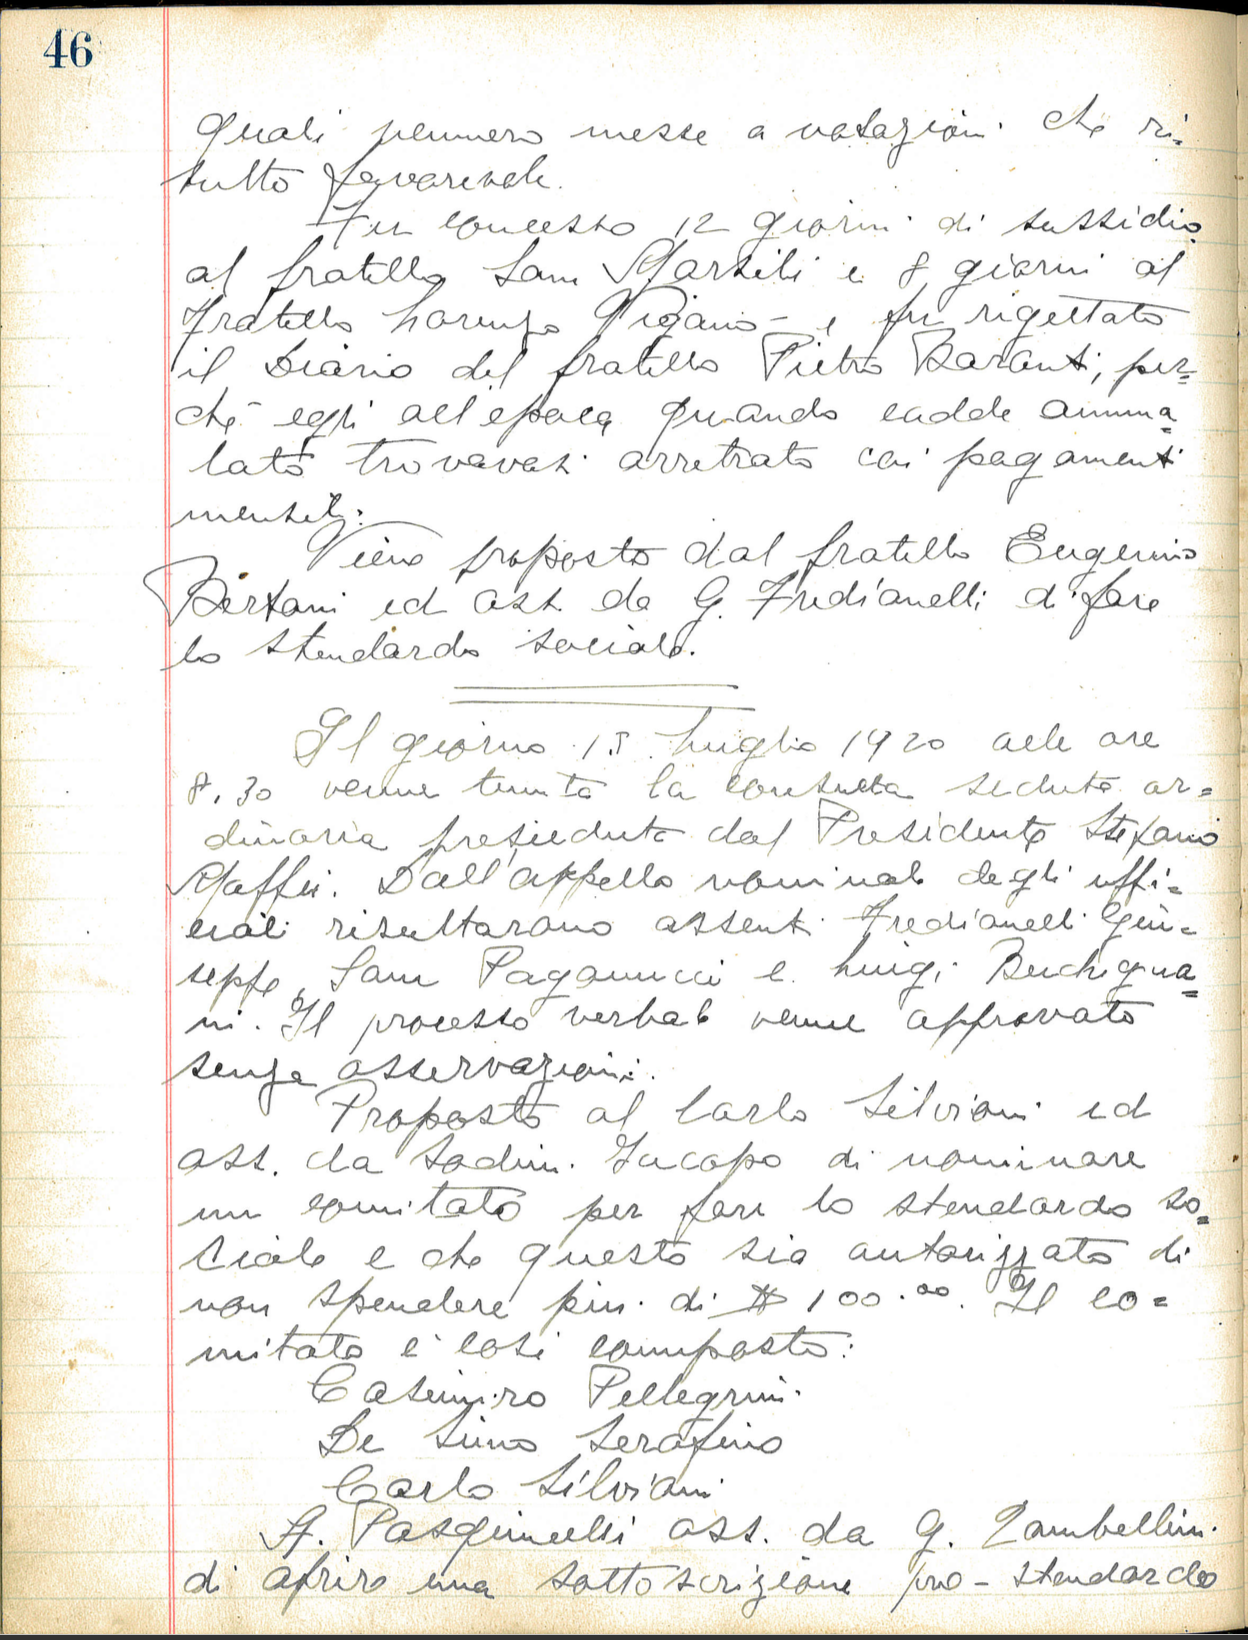 46
quali vennero messe a votazioni che ri=
sultò favorevole.
Fu concesso 12 giorni di sussidio
al fratello Sam Marsili e 8 giorni al
fratello Lorenzo Vigano - e fu rigettato
il Diario del fratello Pietro Baranti, per=
ché egli all'epoca quando cadde amma=
lato trovavasi arretrato coi pagamenti
mensili.
Viene proposto dal fratello Eugenio
Bertani ed ass. da G. Fredianelli di fare
lo stendardo sociale.
Il giorno 15 Luglio 1920 alle ore
8.30 venne tenuta la consulta seduta or=
dinaria presieduta dal Presidente Stefano
Maffei. Dall'appello nominale degli uffi=
ciali risultarono assenti Fredianelli Giu=
seppe, Sam Paganucci e Luigi Buchigna=
ni. Il processo verbale venne approvato
senza osservazioni.
Proposto al Carlo Silviani ed
ass. da Sodini Jacopo di nominare
un comitato per fare lo stendardo so=
ciale e che questo sia autorizzato di
non spendere più di $ 100.00. Il co=
mitato è così composto:
Casimiro Pellegrini
De Simo Serafino
Carlo Silviani
A. Pasquinelli ass. da G. Zambellini
di aprire una sottoscrizione pro-stendardo